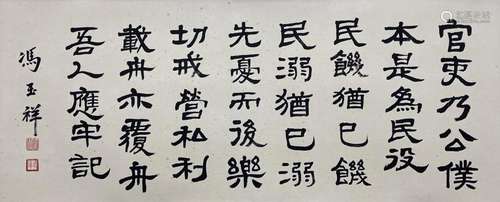 官吏乃公僕
本是為民役
民饑猶己饑
民溺猶己溺
先憂而後樂
切戒營私利
載舟亦覆舟
吾人應牢記
馮玉祥